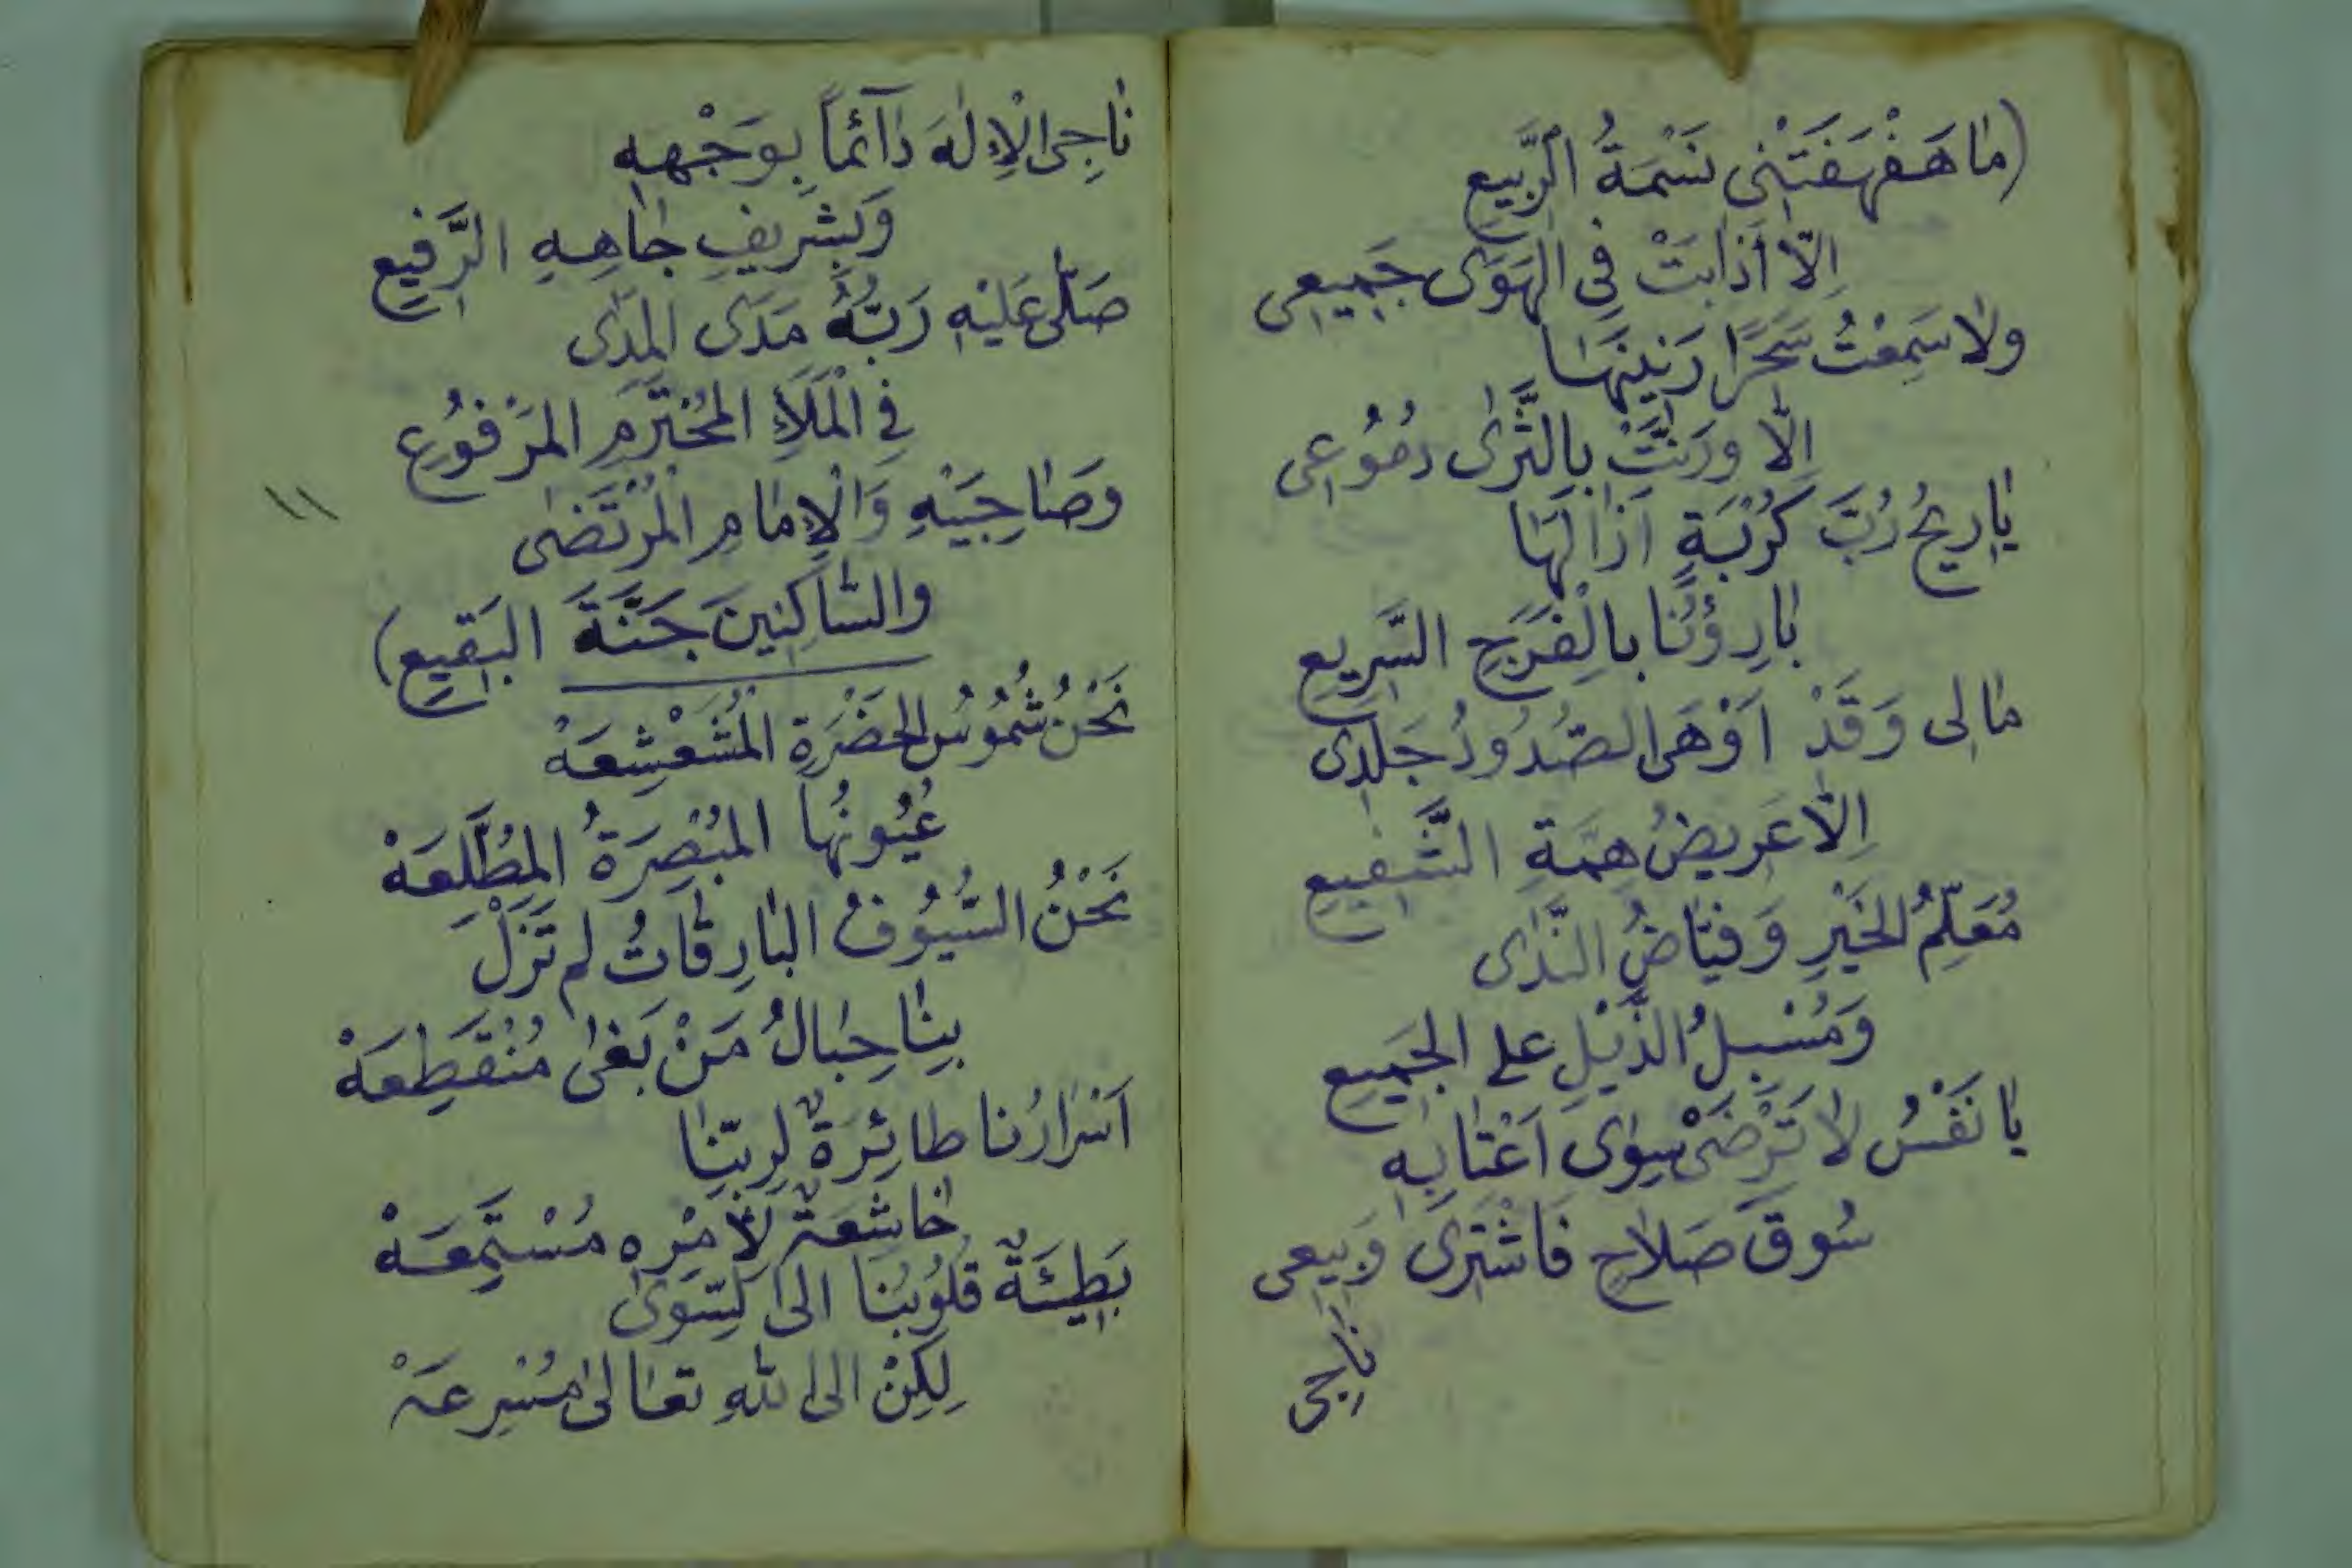 (مٰا هَفْهَفَتْنِى نَسْمَةُ الرَّبِيعِ
اِلّاٰ اَذابَتْ فِى الهَوَى جَمِيعِى
ولاٰ سَمِعْتُ سَحَرًا رَنِينَهَا
اِلّاٰ ورَنَّتْ بِالثَّرٰى دُمُوعِى
يٰا رِيحُ رُبَّ كُرْبَةٍ اَزٰالَهَا
بٰارِؤُنَا بالْفَرَجِ السَّرِيعِ
مٰالِى وَقَدْ اَوْهَى الصُّدُودُ جَلَدِى
اِلّاٰ عَرِيضُ هِمَّةِ الشَّفِيعِ
مُعَلِّمُ الخَيْرِ وَفَيّٰاضُ النَّدٰى
وَمُسْبِلُ الذَّيْلِ على الجَمِيعِ
يٰا نَفْسُ لاٰ تَرْضَىْ سِوٰى اَعْتٰابِهِ
سُوقَ صَلاٰحٍ فَاشْتَرِى وَبِيعِى
نٰاجِى
نٰاجِى الْاِلٰهَ دٰآئماً بِوَجْهِهِ
وَبِشَرِيفِ جٰاهِهِ الرَّفِيعِ
صَلّٰى عَلَيْهِ رَبُّهُ مَدَى المَدٰى
فِى الْمَلَاءِ المُحْتَرَمِ المَرْفُوعِ
وَصٰاحِبَيْهِ وَالْاِمٰامِ الْمُرْتَضٰى
والسّٰاكِنِينَ جَنَّةَ البَقِيعِ)
\\
نَحْنُ شُمُوسُ الحَضْرَةِ الْمُشَعْشِعَهْ
عُيُونُهَا المُبْصِرَةُ المُطَّلِعَهْ
نَحْنُ السُّيُوفُ البٰارِقَاتُ لم تَزَلْ
بِنٰا حِبٰالُ مَنْ بَغٰى مُنْقَطِعَهْ
اَسْرٰارُنا طائِرَةٌ لِرَبِّنٰا
خٰاشِعَةٌ لِاَمْرِهِ مُسْتَمِعَهْ
بَطِيئَةٌ قلُوبُنَا الى السِّوَى
لكِنْ الى اللهِ تعٰالىٰ مُسْرِعَهْ